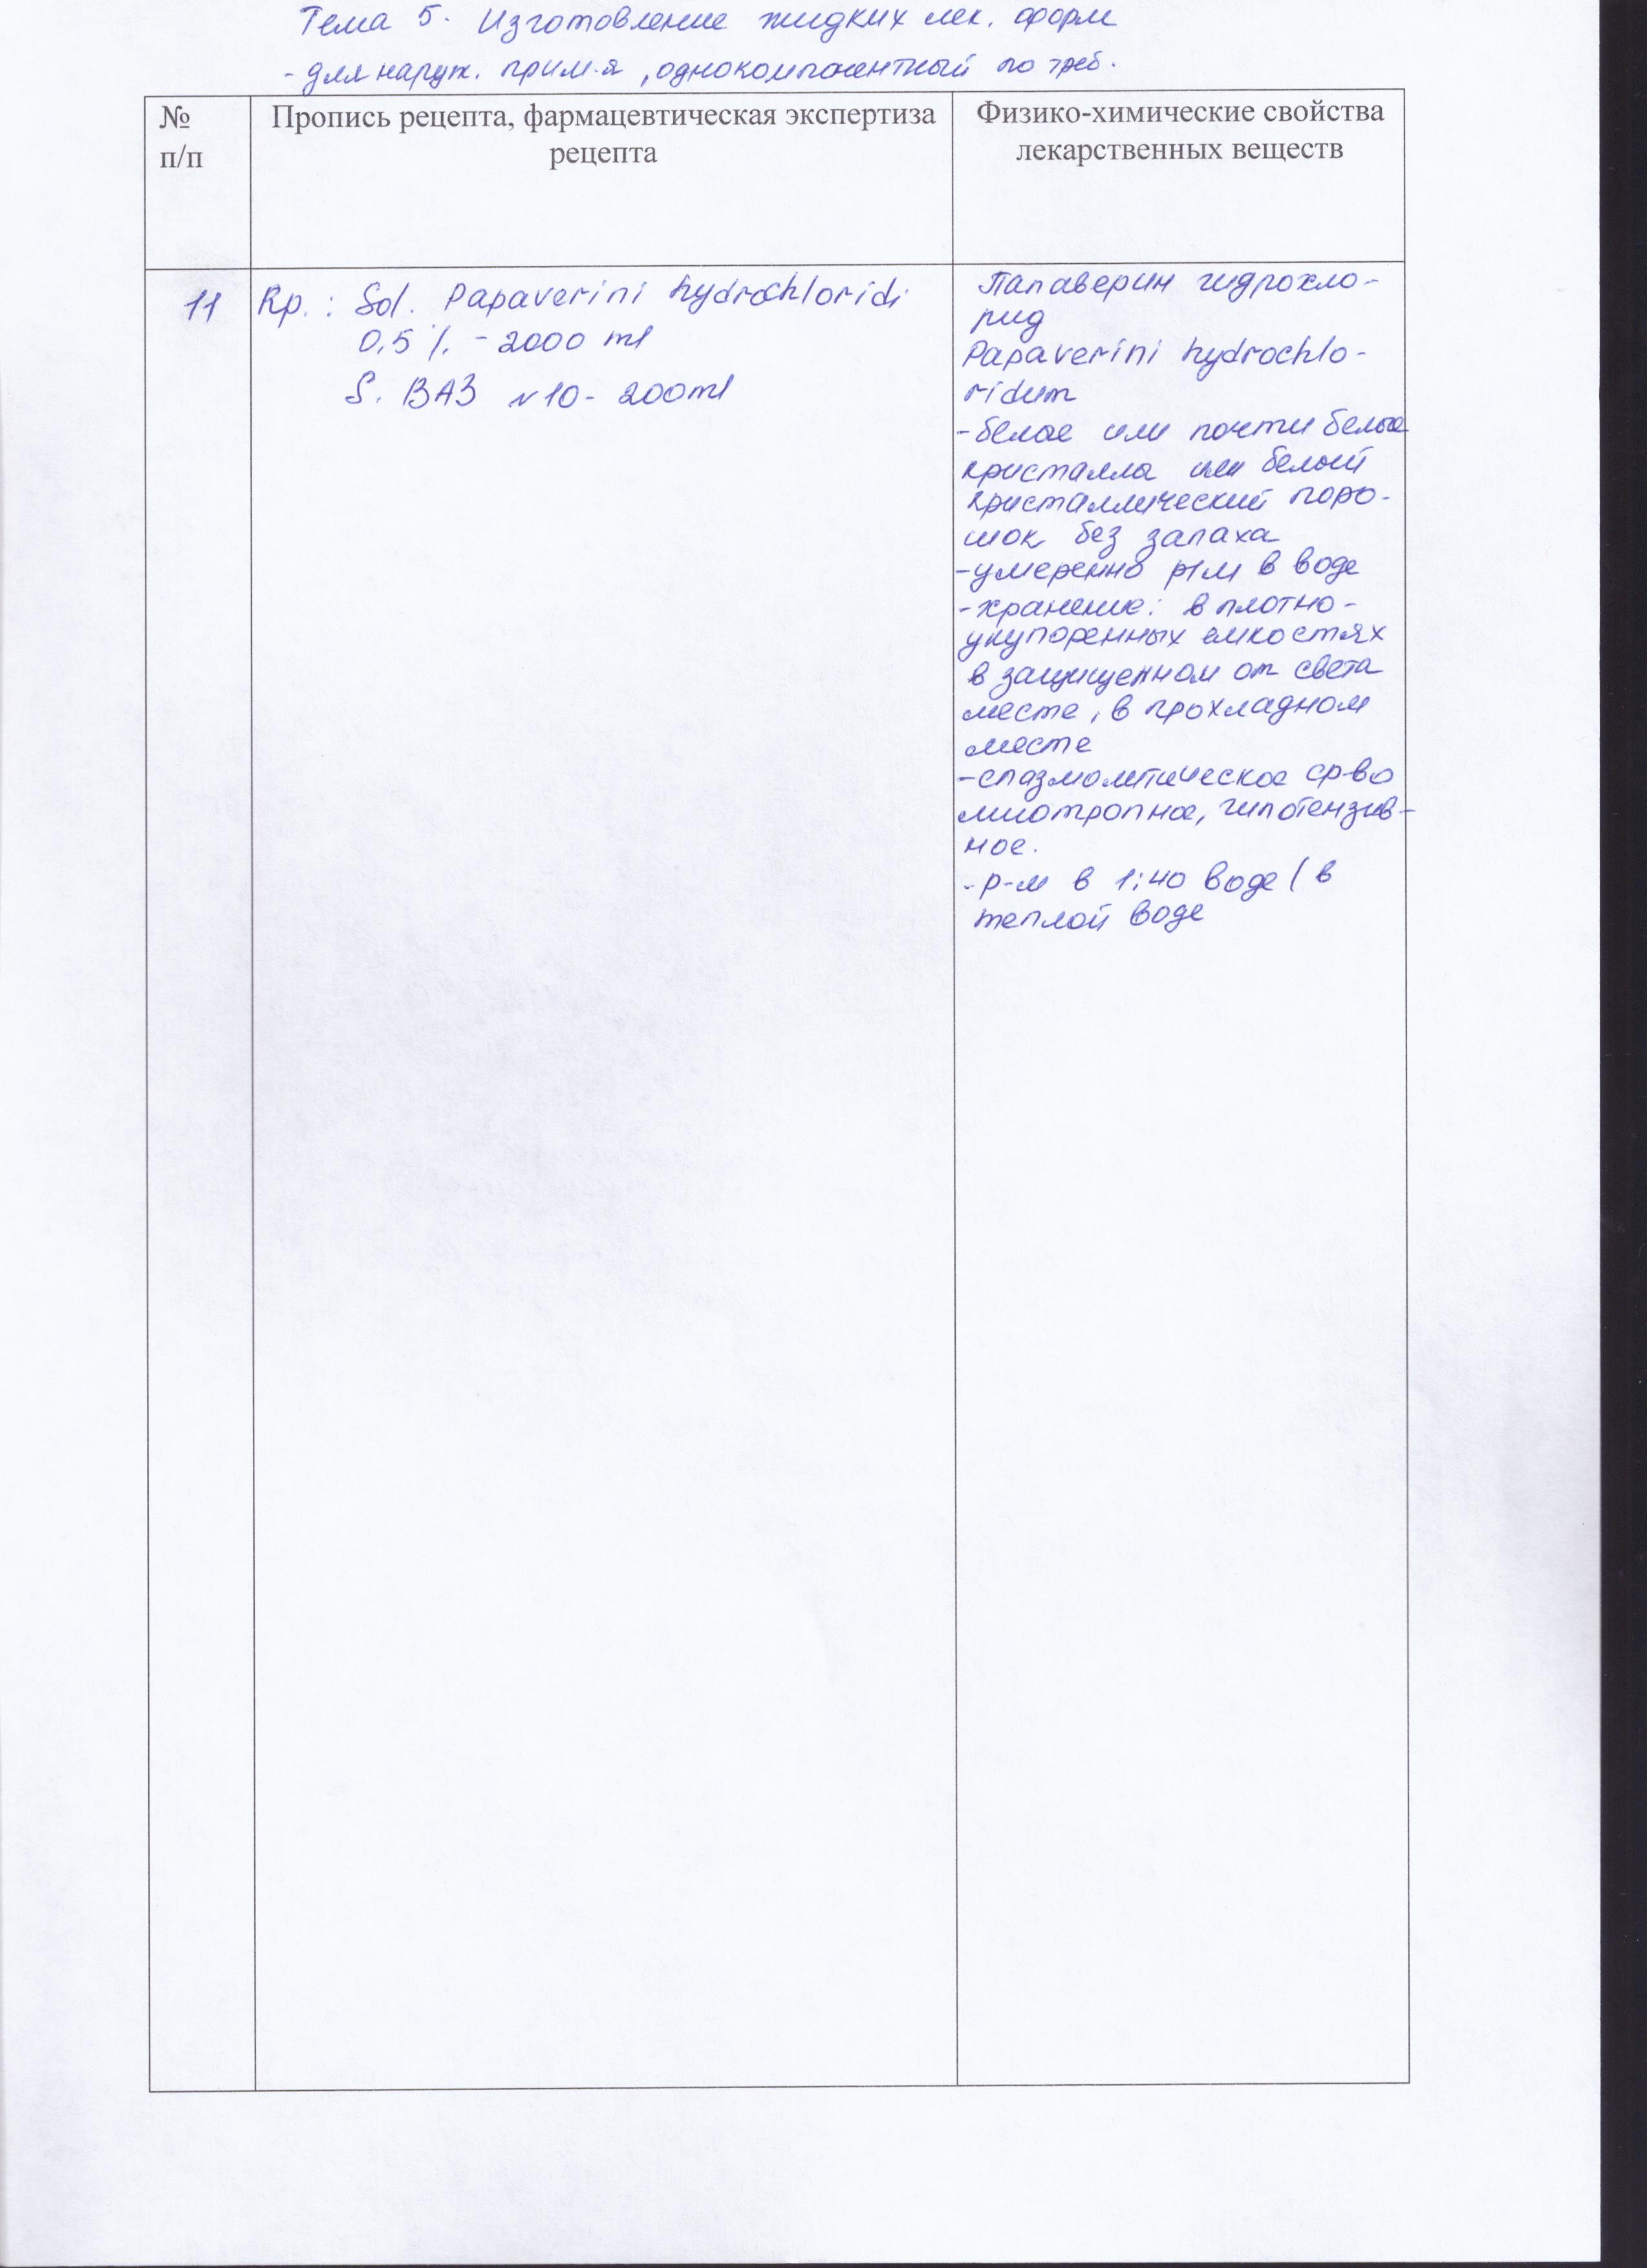 Тема 5. Изготовление жидких лек. форм
- для наруж. прим-я, однокомпонентный по треб.
№
п/п
Пропись рецепта, фармацевтическая экспертиза
рецепта
Физико-химические свойства
лекарственных веществ
11
Rp.: Sol. Papaverini hydrochloridi
0,5 % - 2000 ml
S. ВАЗ №10 - 200ml
Папаверин гидрохло-
рид
Papaverini hydrochlo-
ridum
-белые или почти белые
кристаллы или белый
кристаллический поро-
шок без запаха
-умеренно р/м в воде
-хранение: в плотно-
укупоренных емкостях
в защищенном от света
месте, в прохладном
месте
-спазмолитическое ср-во
миотропное, гипотензив-
ное.
- р-м в 1:40 воде (в
теплой воде